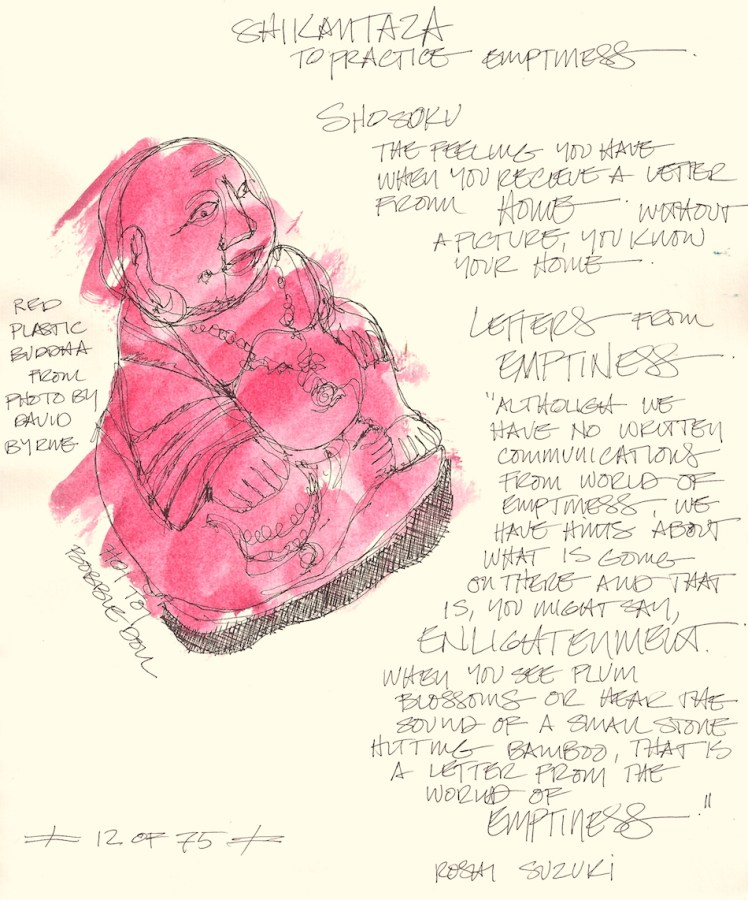 SHIKANTAZA
TO PRACTICE EMPTINESS.
SHOSOKU
THE FEELING YOU HAVE
WHEN YOU RECIEVE A LETTER
FROM HOME. WITHOUT
A PICTURE, YOU KNOW
YOUR HOME.
RED
PLASTIC
BUDDHA
FROM
PHOTO BY
DAVID
BYRNE
HOTTOI
BOBBLE DOLL
LETTERS FROM
EMPTINESS.
"ALTHOUGH WE
HAVE NO WRITTEN
COMMUNICATIONS
FROM WORLD OF
EMPTINESS, WE
HAVE HINTS ABOUT
WHAT IS GOING
ON THERE AND THAT
IS, YOU MIGHT SAY,
ENLIGHTENMENT.
WHEN YOU SEE PLUM
BLOSSOMS OR HEAR THE
SOUND OF A SMALL STONE
HITTING BAMBOO, THAT IS
A LETTER FROM THE
WORLD OF
EMPTINESS."
ROSHI SUZUKI
12 OF 75